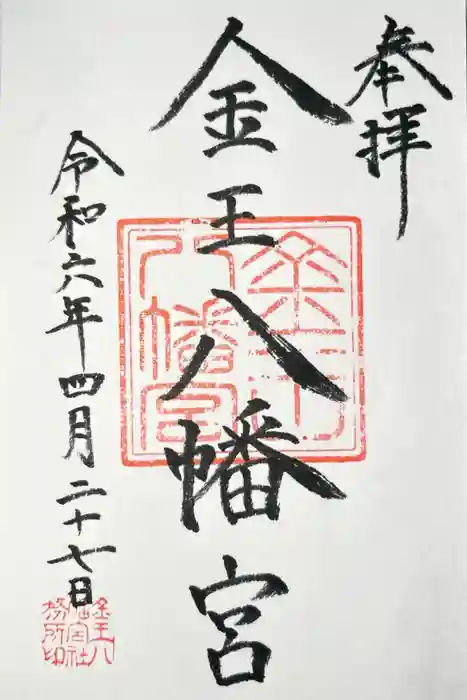 奉拝
金王八幡宮
令和六年四月二十七日
金王八幡宮
金王八幡宮社務所印